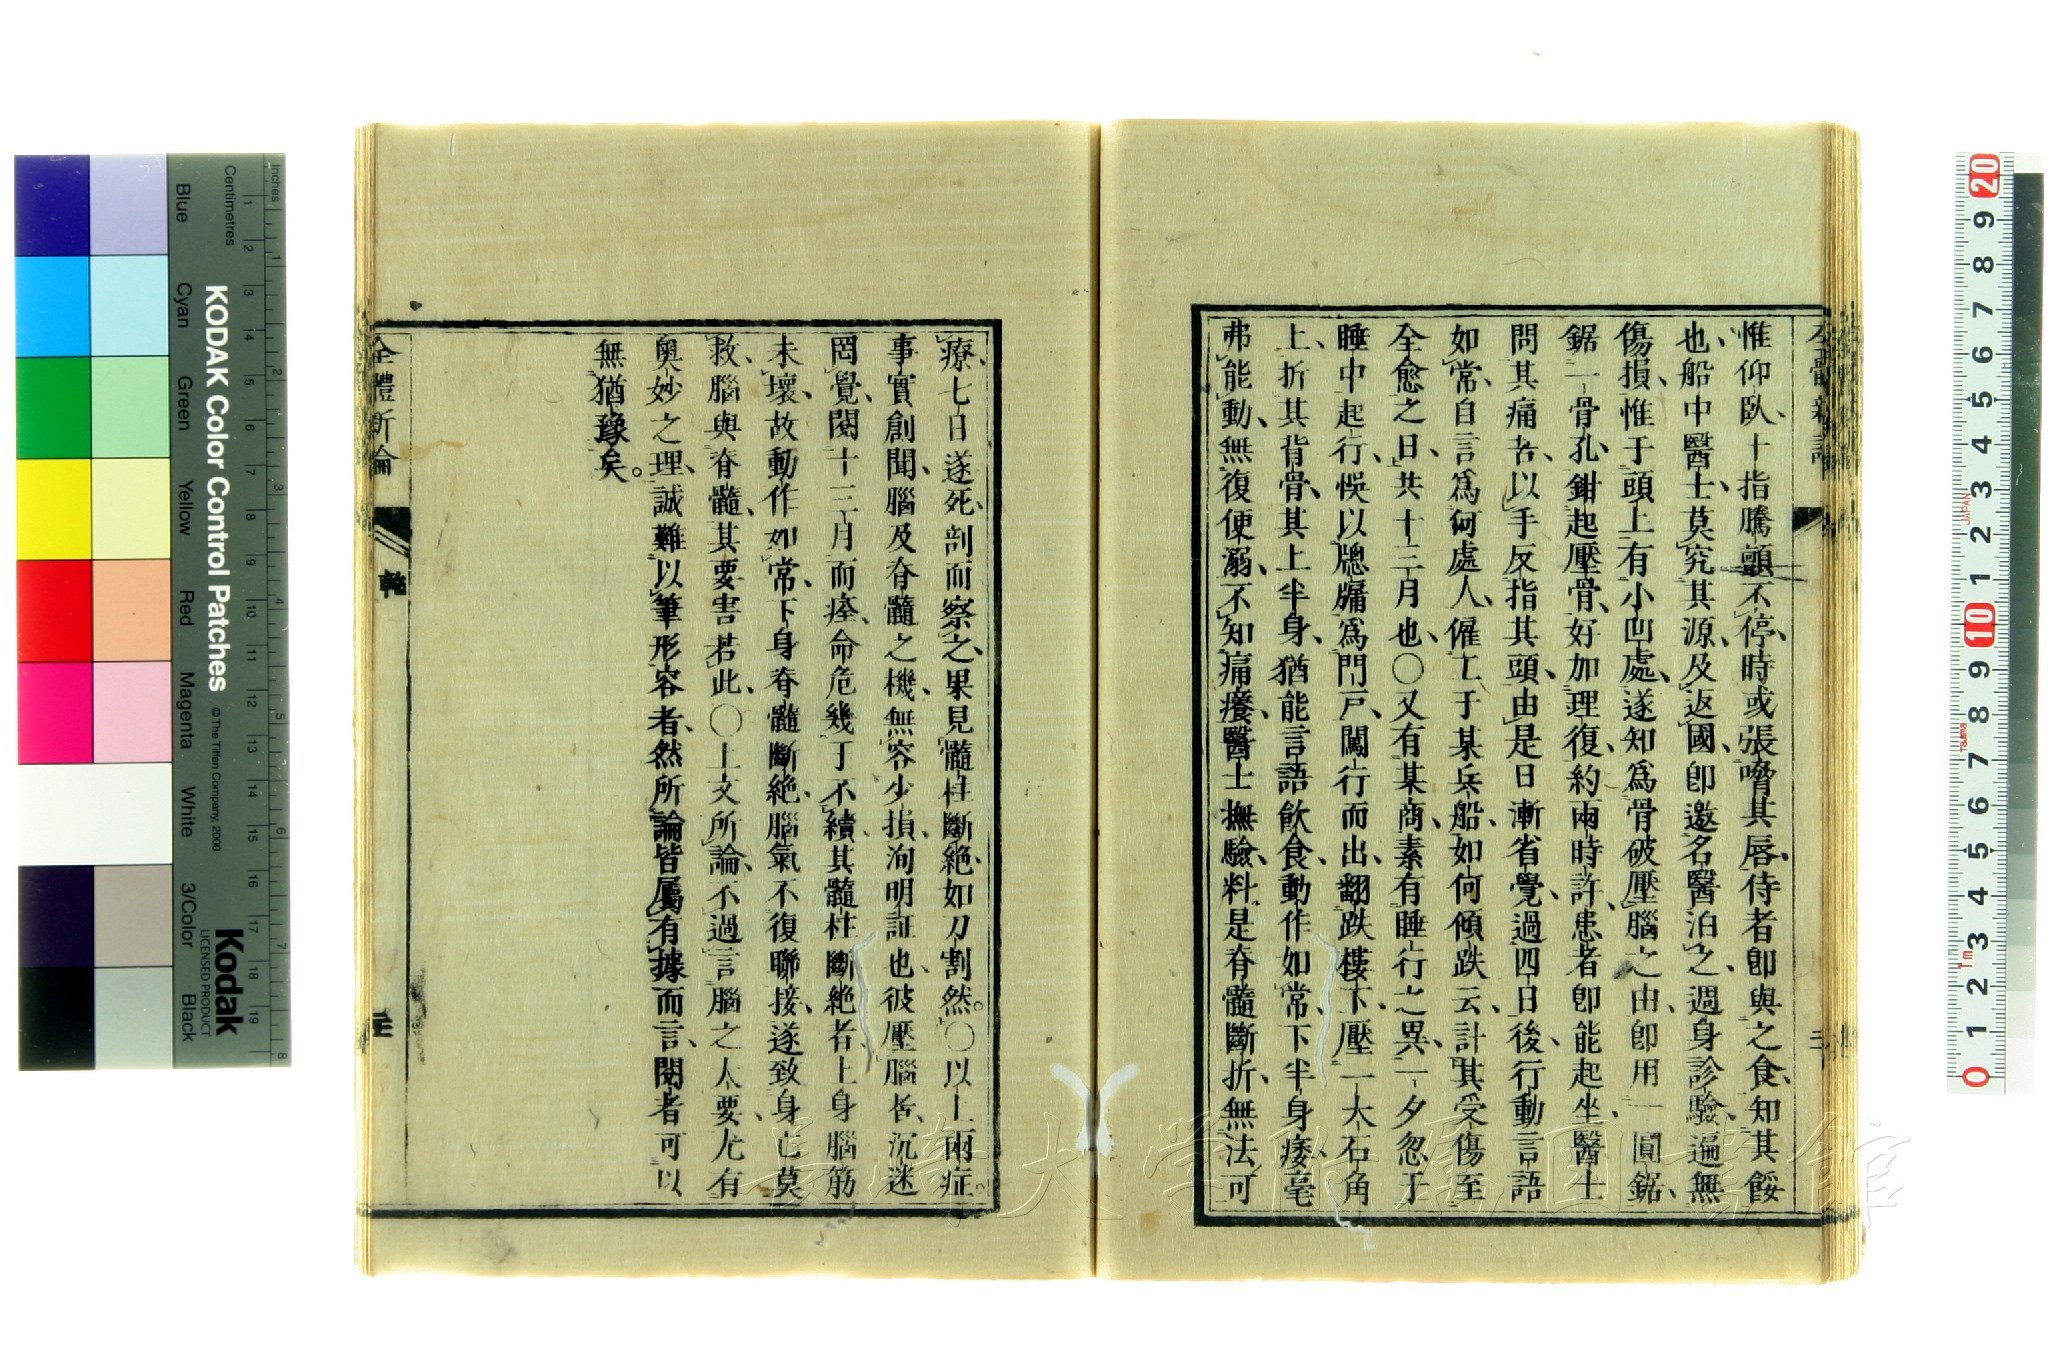 惟仰臥、十指騰顫不停、時或張嚼其唇、侍者卽與之食、知其餒
也、船中醫士、莫究其源、及返國、卽邀名醫泊之、週身診驗、遍無
傷損、惟于頭上有小凹處、遂知爲骨破壓腦之由、卽用一圓鋸、
鋸一骨孔、鉗起壓骨、好加理復、約兩時許、患者卽能起坐、醫士
問其痛否、以手反指其頭、由是日漸省覺、過四日後、行動言語
如常、自言爲何處人、僱工于某兵船、如何傾跌云、計其受傷至
全愈之日、共十三月也、〇又有某商、素有睡行之異、一夕忽于
睡中起行、悞以牕牖爲門戸、闖行而出、翻跌樓下、壓一大石角
上、折其背骨、其上半身、猶能言語飲食、動作如常、下半身痿、毫
弗能動、無復便溺、不知痛癢、醫士撫驗、料是脊髓斷折、無法可
療、七日遂死、剖而察之、果見髓柱斷絶、如刀割然。〇以上兩症。
事實創聞、腦及脊髓之機、無容少損、洵明証也、彼壓腦者、沉迷
罔覺、閱十三月而痊、命危幾丁不續、其髓柱斷絶者、上身腦筋
未壞、故動作如常、下身脊髓斷絶、腦氣不復聯接、遂致身亡莫
救、腦與脊髓、其要害若此、〇上文所論、不過言腦之大要、尤有
奧妙之理、誠難以筆形容者、然所論皆屬有據而言、閱者可以
無猶豫矣。
全體新論
乾
KODAK Color Control Patches
© The Tiffen Company, 2000
Kodak
LICENSED PRODUCT
Inches
Centimetres
Blue
Cyan
Green
Yellow
Red
Magenta
White
3/Color
Black
長崎大学附属図書館
JAPAN
Tajima